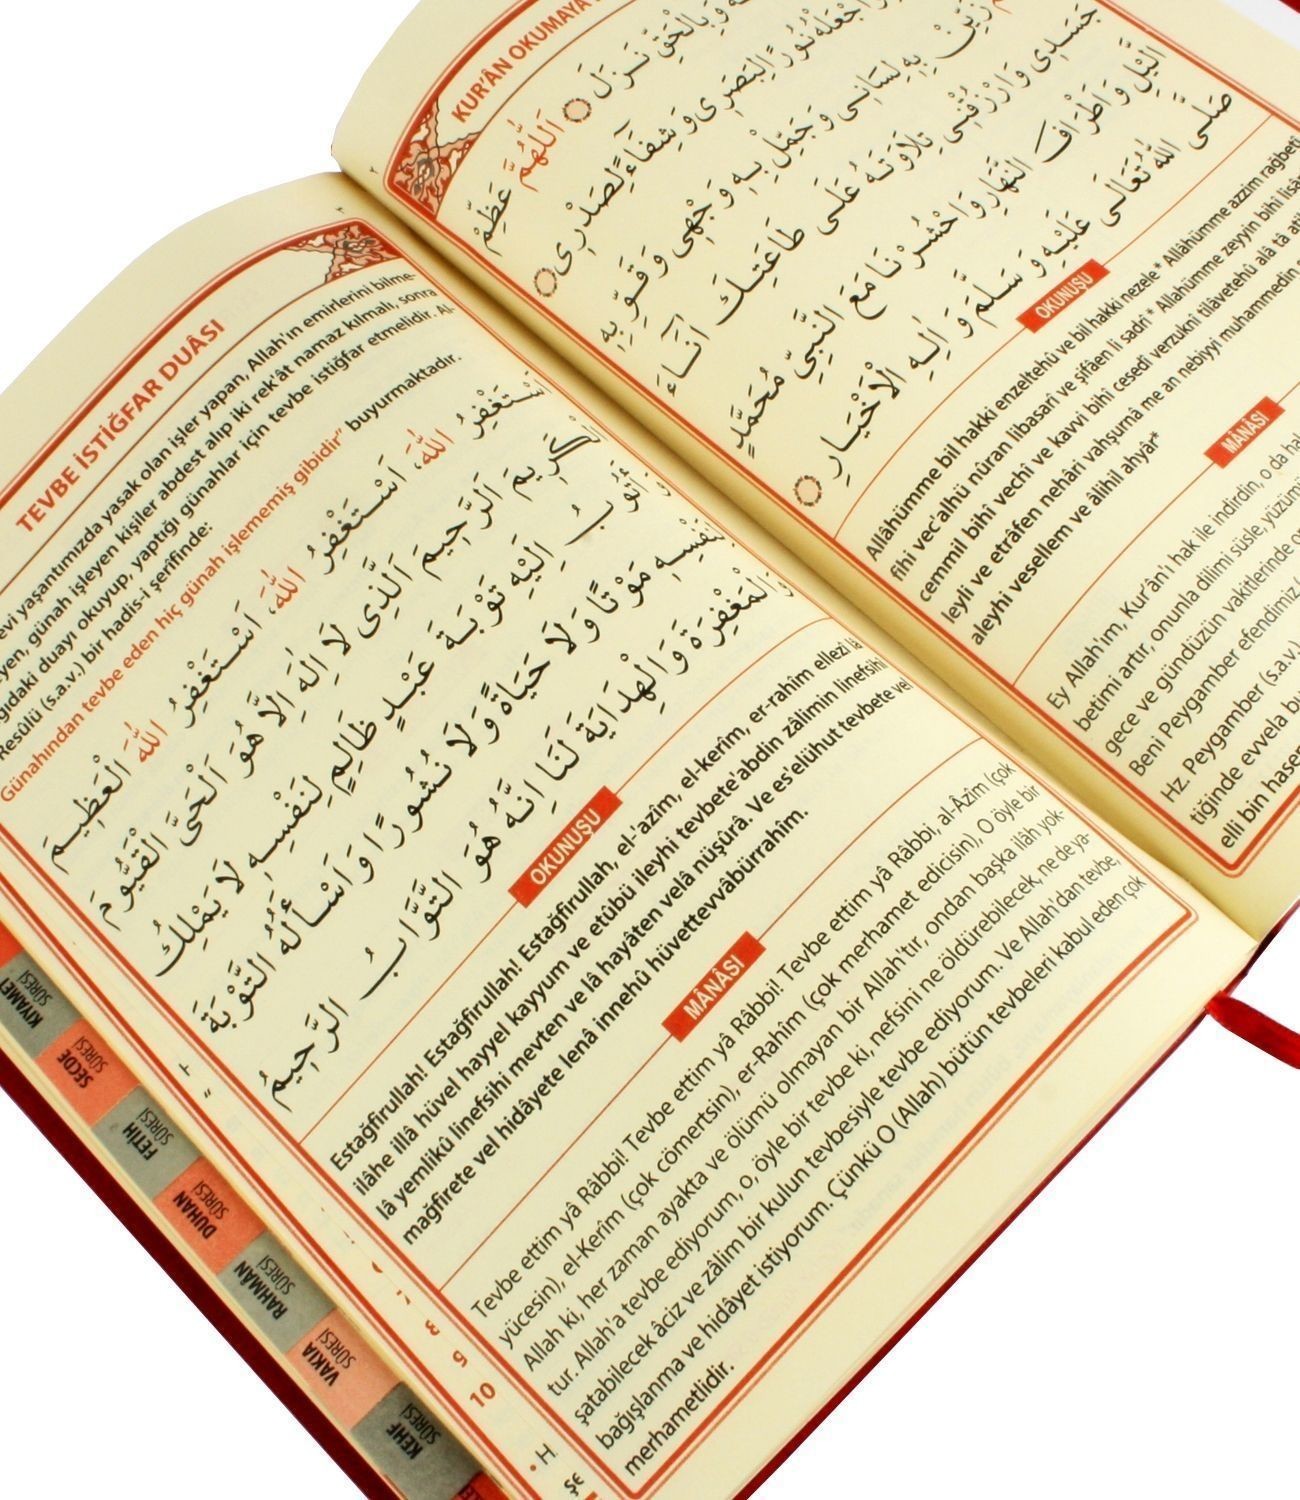 TEVBE İSTİĞFAR DUÂSI
evi yaşantımızda yasak olan işler yapan, Allah'ın emirlerini bilme-
yen, günah işleyen kişiler abdest alıp iki rek'ât namaz kılmalı, sonra
ğıdaki duayı okuyup, yaptığı günahlar için tevbe istiğfar etmelidir. Al-
Resûlü (s.a.v.) bir hadis-i şerifinde:
Günahından tevbe eden hiç günah işlememiş gibidir" buyurmaktadır.
اَسْتَغْفِرُ اللّٰهَ، اَسْتَغْفِرُ اللّٰهَ، اَسْتَغْفِرُ اللّٰهَ الْعَظٖيمَ
الْكَرٖيمَ اَلرَّحٖيمَ اَلَّذٖى لَا اِلٰهَ اِلَّا هُوَ اَلْحَىَّ الْقَيُّومَ
وَاَتُوبُ اِلَيْهِ تَوْبَةَ عَبْدٍ ظَالِمٍ لِنَفْسِهٖ لَا يَمْلِكُ
لِنَفْسِهٖ مَوْتًا وَلَا حَيَاةً وَلَا نُشُورًا وَاَسْاَلُهُ التَّوْبَةَ
وَالْمَغْفِرَةَ وَالْهِدَايَةَ لَنَا اِنَّهُ هُوَ التَّوَّابُ الرَّحٖيمُ
OKUNUŞU
Estağfirullah! Estağfirullah! Estağfirullah, el-'azîm, el-kerîm, er-rahîm ellezî lâ
ilâhe illâ hüvel hayyel kayyum ve etûbü ileyhi tevbete'abdin zâlimin linefsihî
lâ yemlikü linefsihî mevten ve lâ hayâten velâ nüşûrâ. Ve es'elühut tevbete vel
mağfirete vel hidâyete lenâ innehû hüvettevvâbürrahîm.
MÂNÂSI
Tevbe ettim yâ Râbbi! Tevbe ettim yâ Râbbi! Tevbe ettim yâ Râbbi, al-Âzîm (çok
yücesin), el-Kerîm (çok cömertsin), er-Rahîm (çok merhamet edicisin), O öyle bir
Allah ki, her zaman ayakta ve ölümü olmayan bir Allah'tır, ondan başka ilâh yok-
tur. Allah'a tevbe ediyorum, o, öyle bir tevbe ki, nefsini ne öldürebilecek, ne de ya-
şatabilecek âciz ve zâlim bir kulun tevbesiyle tevbe ediyorum. Ve Allah'dan tevbe,
bağışlanma ve hidâyet istiyorum. Çünkü O (Allah) bütün tevbeleri kabul eden çok
merhametlidir.
KUR'ÂN OKUMAYA
وَبِالْحَقِّ نَزَلَ اَللّٰهُمَّ عَظِّمْ
وَاجْعَلْهُ نُورًا لِبَصَرٖى وَشِفَاءً لِصَدْرٖى
زَيِّنْ بِهٖ لِسَانٖى وَجَمِّلْ بِهٖ وَجْهٖى وَقَوِّ بِهٖ
جَسَدٖى وَارْزُقْنٖى تِلَاوَتَهُ عَلٰى طَاعَتِكَ اٰنَاءَ
الَّيْلِ وَاَطْرَافَ النَّهَارِ وَاحْشُرْنَا مَعَ النَّبِىِّ مُحَمَّدٍ
صَلَّى اللّٰهُ تَعَالٰى عَلَيْهِ وَسَلَّمَ وَاٰلِهِ الْاَخْيَارِ
OKUNUŞU
Allâhümme bil hakki enzeltehü ve bil hakki nezele* Allâhümme azzim rağbetî
fîhi vec'alhü nûran libasarî ve şifâen li sadrî* Allahümme zeyyin bihî lisânî
cemmil bihî vechî ve kavvi bihî cesedî verzuknî tilâvetehû alâ tâ
leyli ve etrâfen nehâri vahşurnâ me an nebiyyi muhammedin
aleyhi vesellem ve âlihil ahyâr*
MÂNÂSI
Ey Allah'ım, Kur'ân'ı hak ile indirdin, o da
betimi artır, onunla dilimi süsle, yüzümü
gece ve gündüzün vakitlerinde
Beni Peygamber efendimiz
Hz. Peygamber (s.a.v.)
tiğinde evvela
elli bin
KIYAMET SÛRESİ
SECDE SÛRESİ
FETİH SÛRESİ
DUHAN SÛRESİ
RAHMÂN SÛRESİ
VAKIA SÛRESİ
KEHF SÛRESİ
10